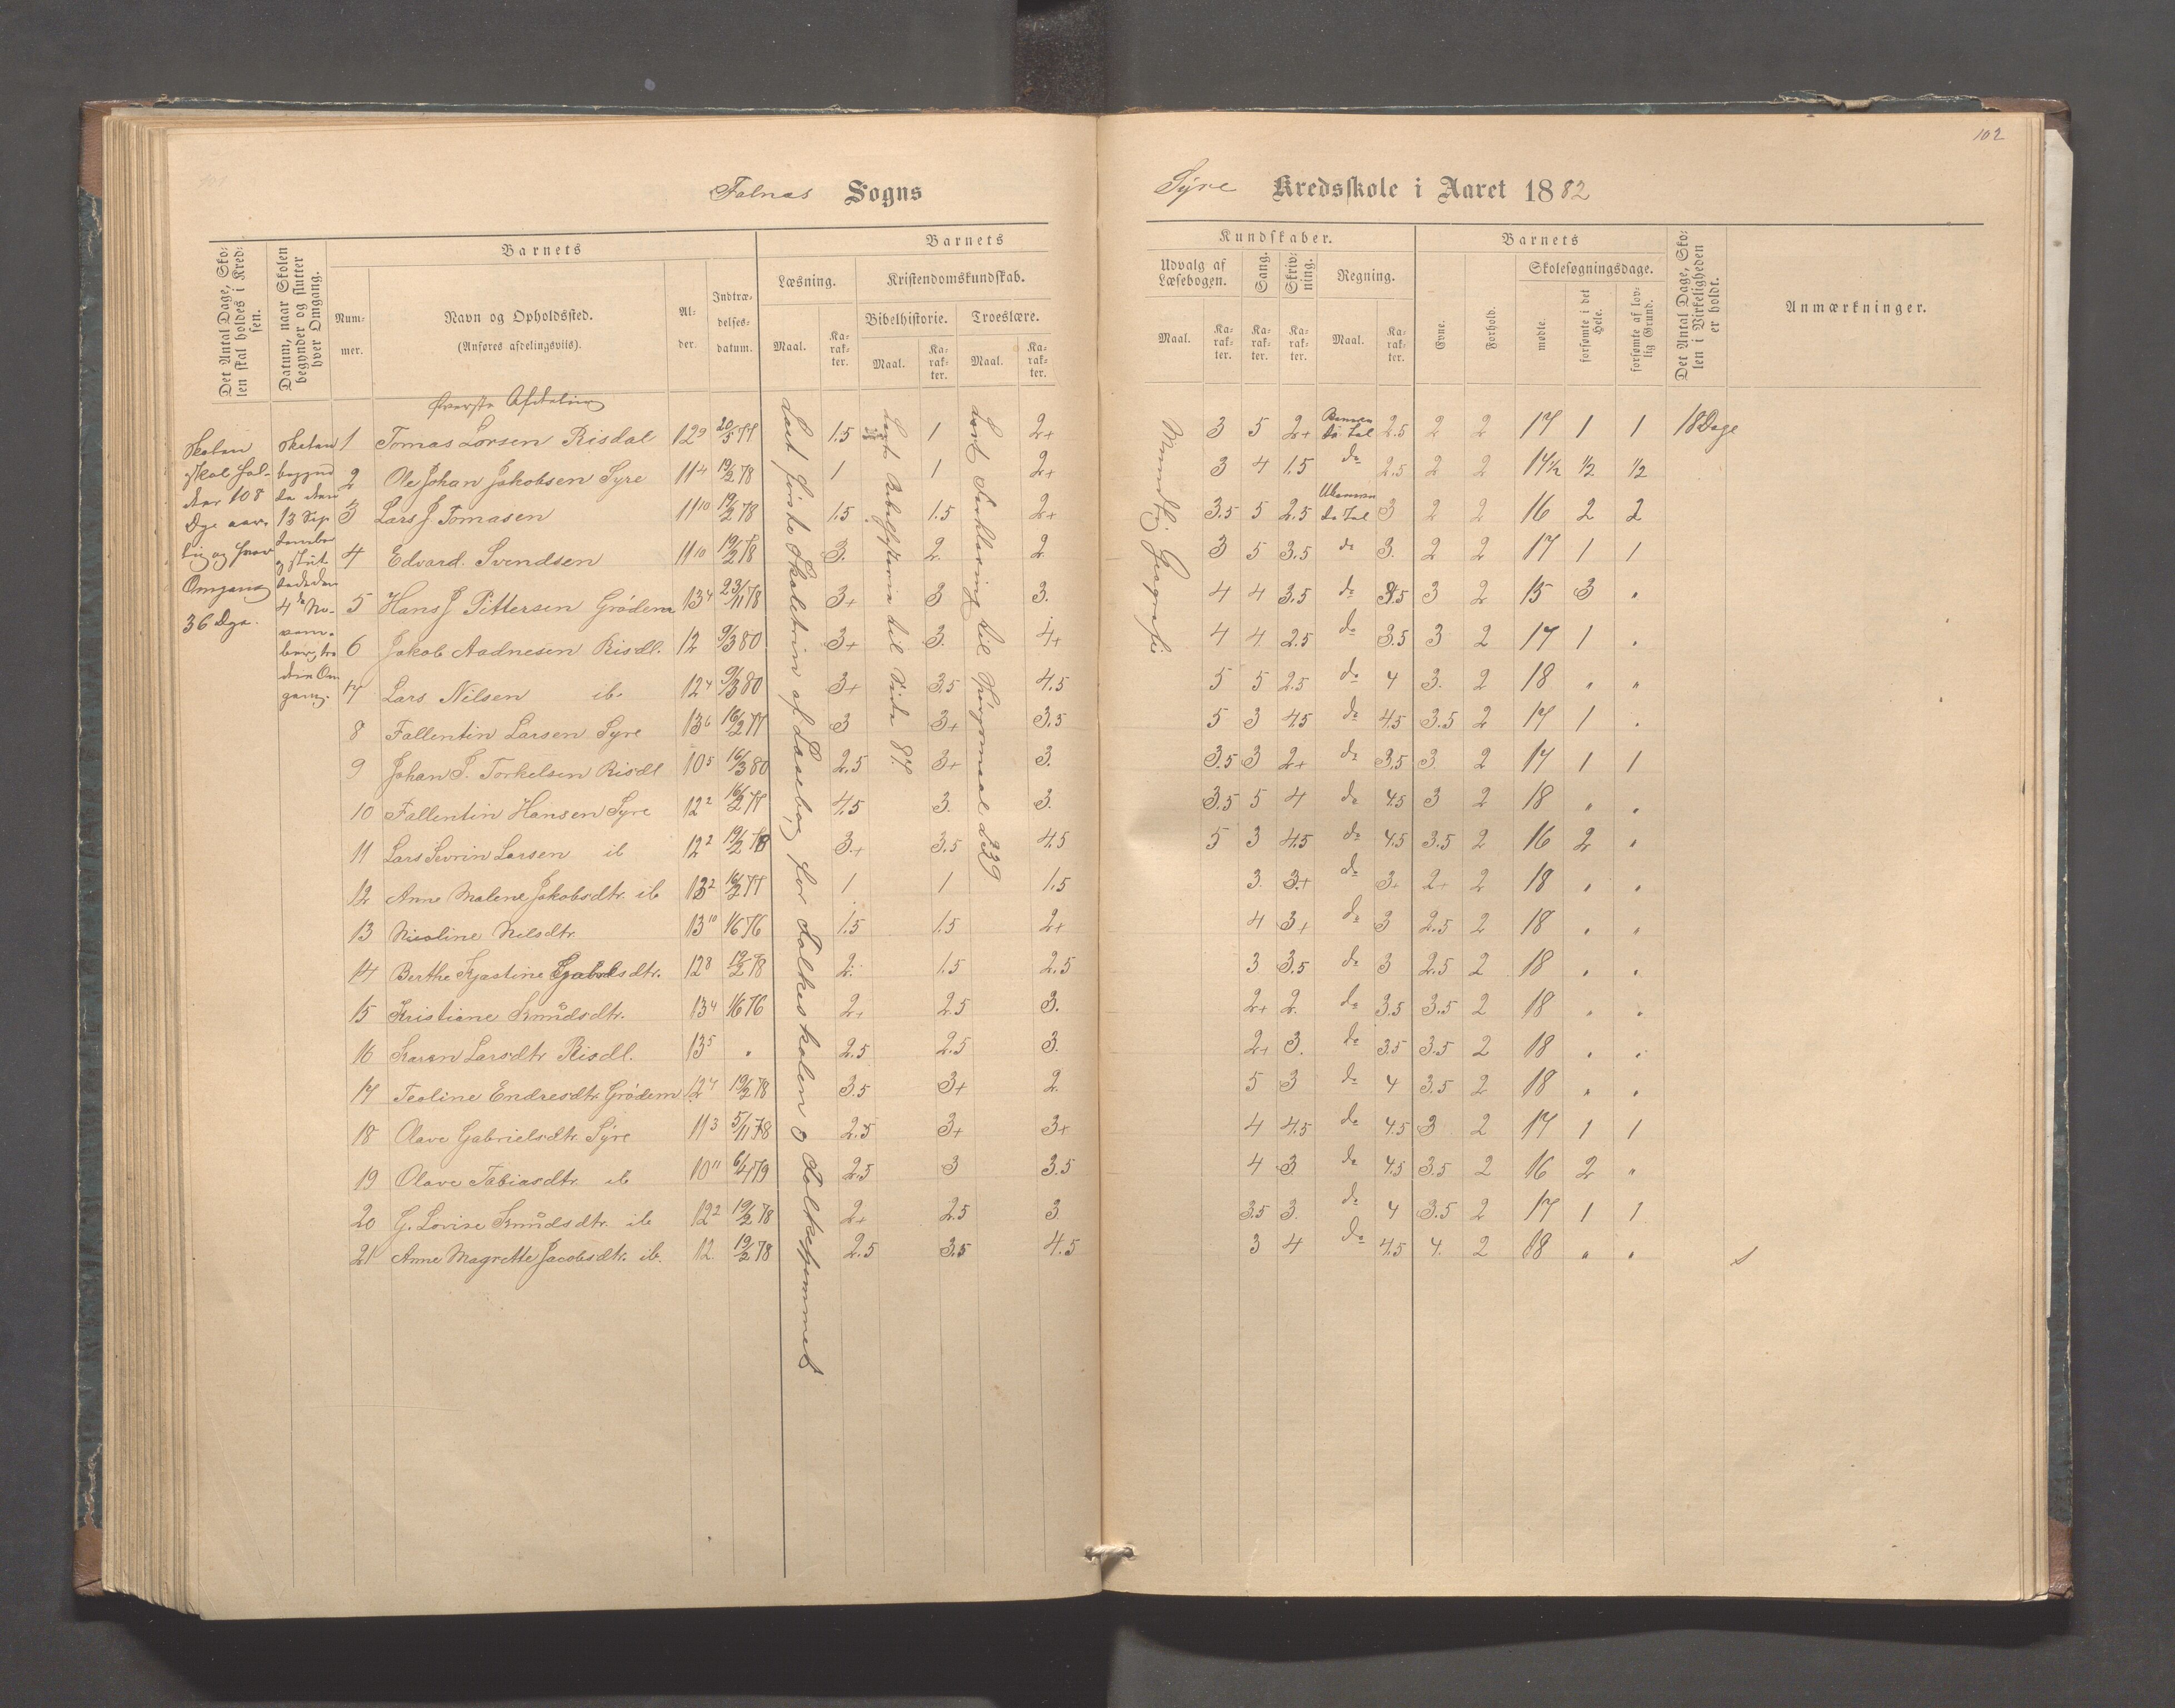 102
Falnæs Sogns
Syre Kredsskole i Aaret 1882
Det Antal Dage, Skolen skal holdes i Kredsen.
Datum, naar Skolen begynder og slutter hver Omgang.
Barnets
Nummer.
Navn og Opholdssted.
(Anføres afdelingsviis).
Alder.
Indtrædelsesdatum.
Barnets
Læsning.
Maal.
Karakter.
Kristendomskundskab.
Bibelhistorie.
Maal.
Karakter.
Troeslære.
Maal.
Karakter.
Kundskaber.
Udvalg af Læsebogen.
Maal.
Karakter.
Sang.
Karakter.
Skrivning.
Karakter.
Regning.
Maal.
Karakter.
Barnets
Evne.
Forhold.
Skolesøgningsdage.
mødte.
forsømte i det Hele.
forsømte af lovlig Grund.
Det Antal Dage, Skolen i Virkeligheden er holdt.
Anmærkninger.
Øverste Afdeling
Skolen skal holdes 108 Dge aarlig og hver Omgang 36 Dge.
Skolen begyndte den 13 September og sluttede den 4de November, tredie Omgang.
Læst første Skoletrin af Læsebog for Folkeskolen o Folkehjemmet
Læste Bibelhistorien til Side 87
Læst Forklaring til Spørgsmaal 239
Mundtlig Geografie
1 Tomas Larsen Risdal 12 9 20/5 77 1.5 1 2+ 3 5 2+ 2.5 2 2 17 1 1 18 Dage
2 Ole Johan Jakobsen Syre 11 4 19/2 78 1 1 2+ 3 4 1.5 do 2.5 2 2 17½ ½ ½
3 Lars J Tomasen 11 10 19/2 78 1.5 1.5 2+ 3.5 5 2.5 3 2 2 16 2 2
4 Edvard. Svendsen 11 10 19/2 78 3. 2. 2 3 5 3.5 do 3. 2 2 17 1 1
5 Hans J Pittersen Grødem 13 4 23/11 78 3+ 3 3. 4 4 3.5 do 3.5 3 2 15 3 "
6 Jakob Aadnesen Risdl. 12 9/3 80 3+ 3. 4+ 4 4 2.5 do 3.5 3 2 17 1 "
7 Lars Nilsen ib. 12 4 9/3 80 3+ 3.5 4.5 5 5 2.5 do 4 3. 2 18 " "
8 Fallentin Larsen Syre 13 6 16/2 77 3 3+ 3.5 5 3 4.5 do 4.5 3.5 2 17 1 "
9 Johan S. Torkelsen Risdl 10 5 16/3 80 2.5 3+ 3. 3.5 3 2+ do 3.5 3 2 17 1 1
10 Fallentin Hansen Syre 12 2 16/2 77 4.5 3. 3. 3.5 5 4 do 4.5 3 2 18 " "
11 Lars Sevrin Larsen ib 12 2 19/2 78 3+ 3.5 4.5 5 3 4.5 do 4.5 3.5 2 16 2 "
12 Anne Malene Jakobsdtr. ib 13 2 16/2 77 1 1 1.5 3. 3+ do 3. 2+ 2 18 " "
13 Nicoline Nilsdtr. 13 10 1676 1.5 1.5 2+ 4 3+ do 3 2.5 2 18 " "
14 Berthe Kjastine Gabrlsdtr. 12 8 19/2 78 2. 1.5 2.5 3 3.5 do 3 2.5 2 18 " "
15 Kristiane Knudsdtr. 13 4 1676 2+ 2.5 3. 2+ 2. do 3.5 3.5 2 18 " "
16 Karen Larsdtr Risdl. 13 5 " 2.5 2.5 3. 2+ 3. do 3.5 3.5 2 18 " "
17 Teoline Endresdtr. Grødem 12 7 19/2 78 3.5 3+ 2. 5 3 do 4 3.5 2 18 " "
18 Olave Gabrielsdtr. Syre 11 3 5/11 78 2.5 3+ 3+ 4 4.5 do 4.5 3 2 17 1 1
19 Olave Tobiasdtr. ib 10 11 6/4 79 2.5 3 3.5 4 3 do 4.5 3.5 2 16 2 "
20 G. Lovise Knudsdtr. ib 12 2 19/2 78 2+ 2.5 3 3.5 3. do 4 3.5 2 17 1 1
21 Anne Magrette Jacobsdtr. ib. 12 19/2 78 2.5 3.5 4.5 3 4 do 4.5 4. 2 18 " "